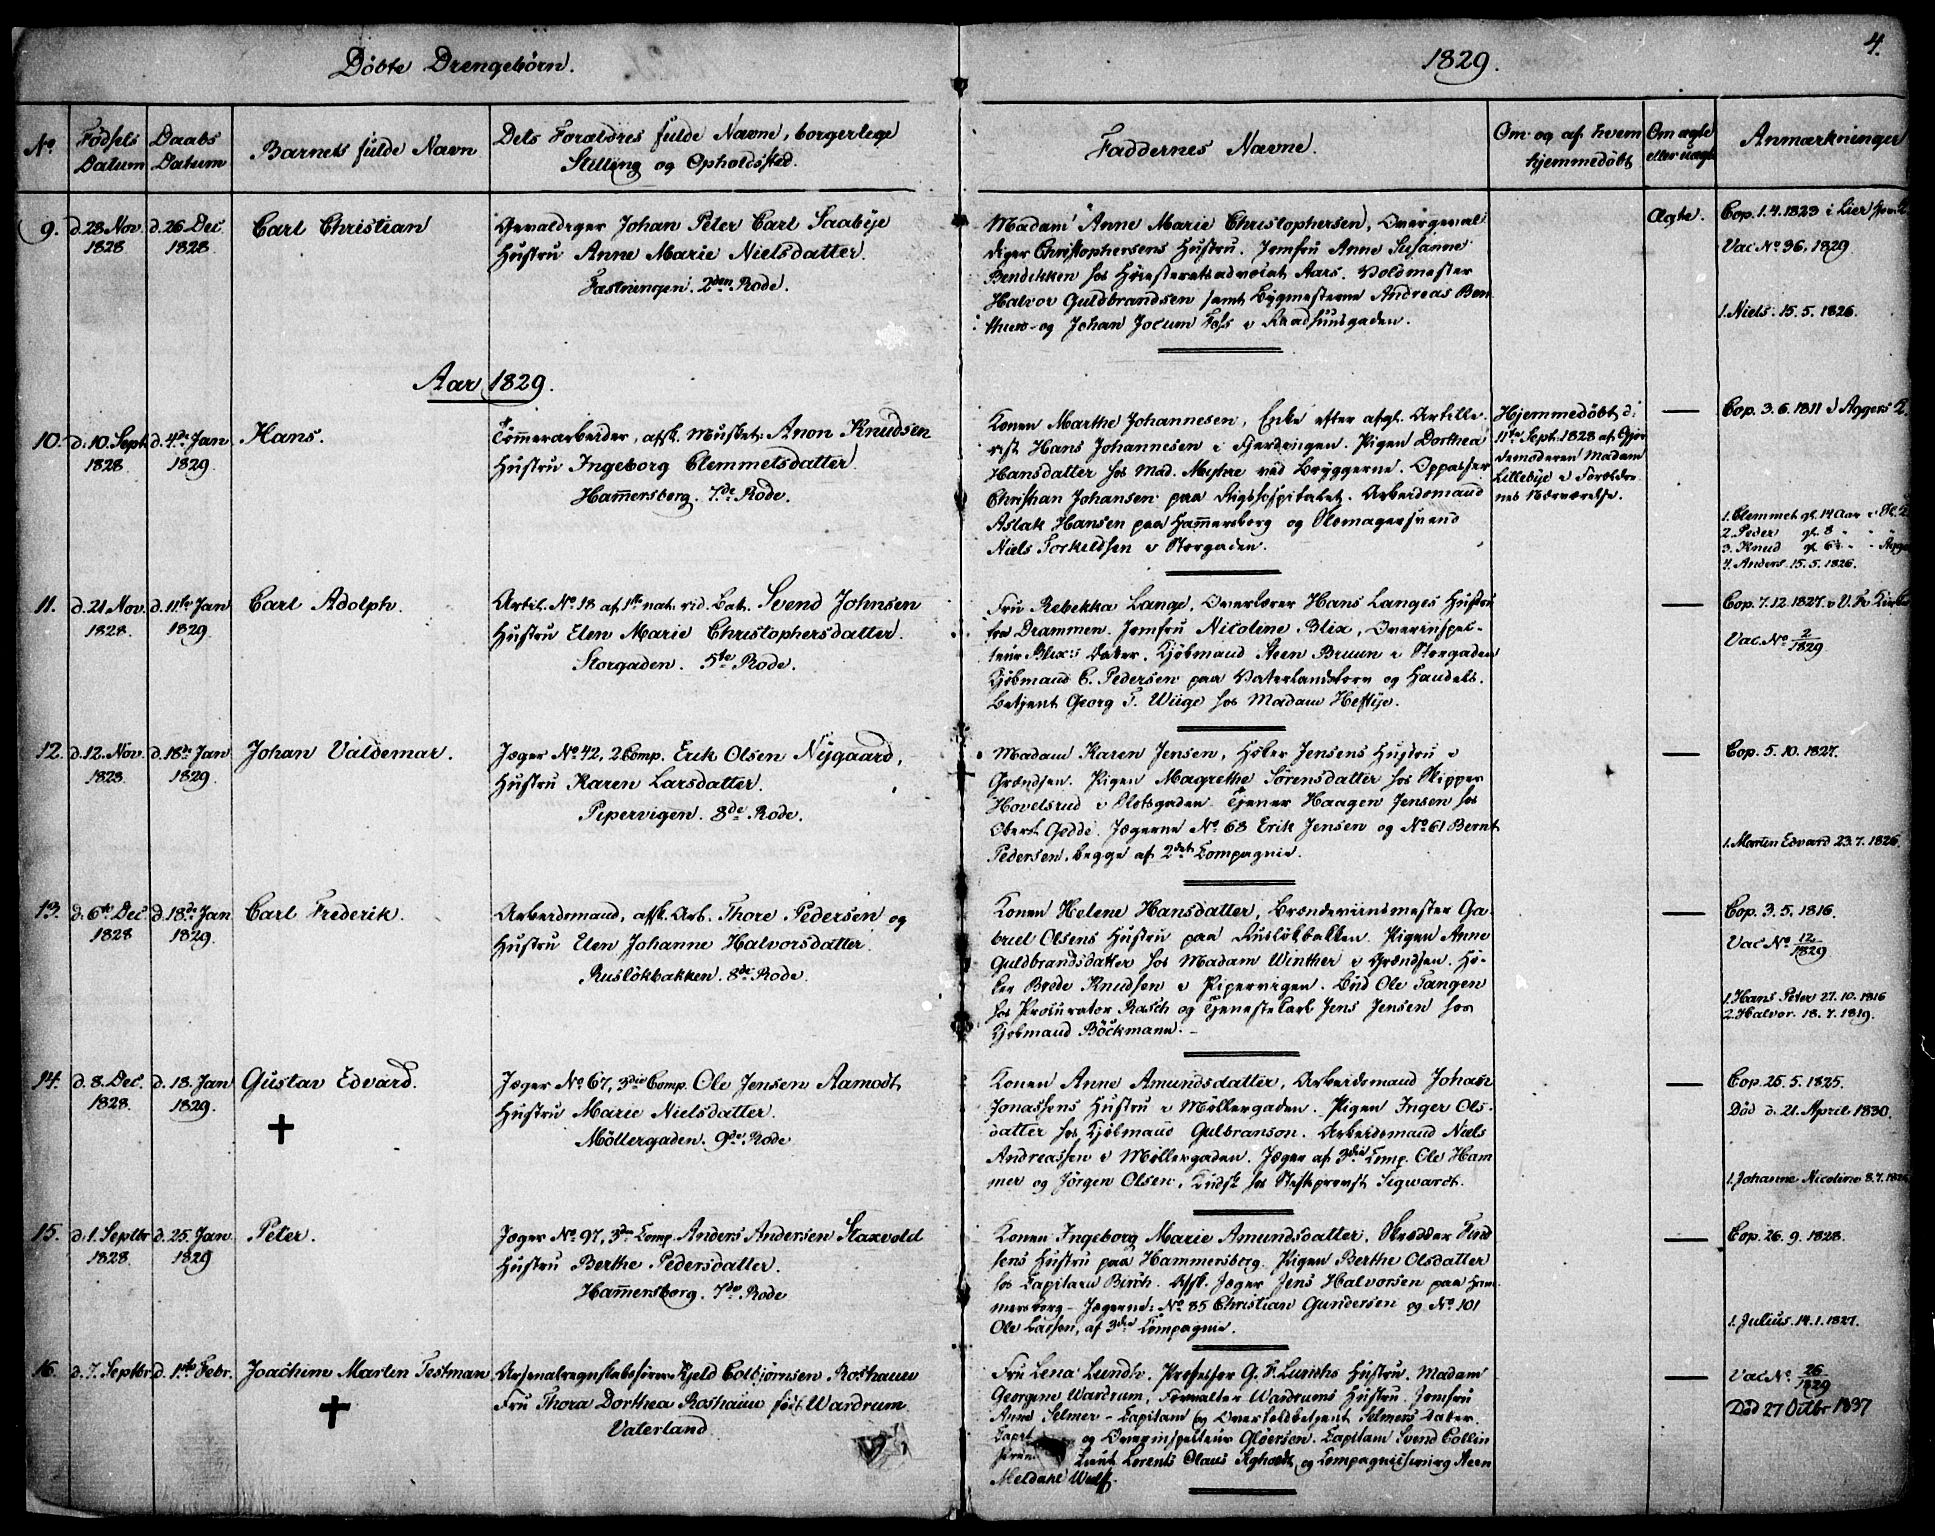 Döbte Drengebörn.
1829.
4.
No
Födsels Datum
Daabs Datum
Barnets fulde Navn
Dets Forældres fulde Navne, borgerlige
Stilling og Opholdssted.
Faddernes Navne.
Om og af hvem
hjemmedöbt
Om ægte
eller uægte
Anmærkninger
9.
d. 28 Nov.
1828
d. 26 Dec.
1828
Carl Christian
Gevaldiger Johan Peter Carl Saabye
Hustru Anne Marie Nielsdatter.
Fæstningen. 2den Rode.
Madam Anne Marie Christophersen, Overgeval
diger Christophersens Hustru. Jomfru Anne Susanne
Bendikken hos Höiesteretsadvocat Aars. Voldmester
Halvor Guldbrandsen samt Bygmesterne Andreas Ben
thun og Johan Jocum Foss i Raadhuusgaden.
Ægte.
Cop. 1.4.1823 i Lier
Vac No 36, 1829.
1. Niels. 15.5.1826.
Aar 1829.
10.
d. 10. Sept.
1828
d. 4de Jan
1829
Hans.
Tömmerarbeider, afsk. Musket. Anon Knudsen
Hustru Ingeborg Clemmetsdatter.
Ham̄ersborg. 7de Rode.
Konen Marthe Johannesen, Enke efter afgt. Artille
rist Hans Johannesen i Fjerdingen. Pigen Dorthea
Hansdatter hos Mad. Myhre ved Bryggerne. Oppasser
Christian Johansen paa Rigshospitalet. Arbeidsmand
Aslak Hansen paa Ham̄ersborg og Skomagersvend
Niels Torkeldsen i Storgaden.
Hjemmedöbt d.
11te Sept. 1828 af Gjor
demoderen Madam
Lillebye i Forældre
nes Nærværelse.
—
Cop. 3.6.1811 i Aggers K.
1. Clemmet gl. 14 Aar
2. Peder gl. 8 "
3. Knud gl. 6½ "
4. Anders. 15.5.1826.
11.
d. 21 Nov.
1828.
d. 11te Jan
1829
Carl Adolph.
Artil. No. 18 af 1ste nat. rid. Bat. Svend Johnsen
Hustru Elen Marie Christophersdatter.
Storgaden. 5te Rode.
Fru Rebekka Lange, Overlærer Hans Langes Hustru
fra Drammen. Jomfru Nicoline Blix, Overinspec-
teur Blix's Datter. Kjöbmand Steen Bruun i Storgaden
Kjöbmand C. Pedersen paa Vaterlandstorv og Handels.
betjent Georg T. Wiige hos Madam Heftye.
—
Cop. 7.12.1827. i V. Fr Kirke
Vac. No 2/1829
12.
d. 12. Nov.
1828.
d. 18de Jan
1829.
Johan Valdemar.
Jæger No. 42, 2 Comp. Erik Olsen Nygaard,
Hustru Karen Larsdatter.
Pipervigen. 8de Rode.
Madam Karen Jensen, Höker Jensens Hustru i
Grændsen. Pigen Magrethe Sörensdatter hos Skipper
Hovelsrud i Slotsgaden. Tjener Haagen Jensen hos
Oberst Gedde. Jægerne No. 68 Erik Jensen og No. 61 Bernt
Pedersen, begge af 2det Compagnie.
—
Cop. 5.10.1827.
1. Marten Edvard 23.7.1826.
13.
d. 6te Dec
1828
d. 18de Jan
1829.
Carl Frederik.
Arbeidsmand, afsk. Art. Thore Pedersen og
Hustru Elen Johanne Halvorsdatter.
Ruslökbakken. 8de Rode.
Konen Helene Hansdatter, Brændeviinsmester Ga-
briel Olsens Hustru paa Ruslökbakken. Pigen Anne
Guldbrandsdatter hos Madam Winther i Grændsen. Hö-
ker Brede Knudsen i Pipervigen. Bud Ole Tangen
hos Procurator Rasch og Tjenestekarl Jens Jensen hos
Kjöbmand Böckmann. –
—
Cop. 3.5.1816.
Vac No 12/1829
1. Hans Peter 27.10.1816
2. Halvor. 18.7.1819.
14.
d. 8. Dec.
1828.
d. 18. Jan
1829.
Gustav Edvard.
✝
Jæger No. 67, 3die Comp. Ole Jensen Aamodt,
Hustru Marie Nielsdatter.
Möllergaden. 9de Rode
Konen Anne Amundsdatter, Arbeidsmand Johan
Jonassens Hustru i Möllergaden. Pigen Inger Ols-
datter hos Kjöbmand Gulbranson. Arbeidsmand Niels
Andreassen i Möllergaden. Jæger af 3die Comp. Ole Ham
mer og Jörgen Olsen, Kudsk hos Stiftsprovst Sigwardt.
—
Cop. 25.5.1825.
Död d. 21. April 1830.
1. Johanne Nicoline 8.7.1826
15.
d. 1. Septbr
1828.
d. 25. Jan
1829
Peter.
Jæger No. 97, 3die Comp. Anders Andersen Staxvold
Hustru Berthe Pedersdatter.
Ham̄ersborg. 7de Rode
Konen Ingeborg Marie Amundsdatter, Skrædder Find
sens Hustru paa Hammersberg. Pigen Berthe Olsdatter
hos Capitain Birch. Afsk. Jæger Jens Halvorsen paa Ham
mersborg – Jægerne: No. 85 Christian Gundersen og No. 101
Ole Larsen, af 3die Compagnie.
—
Cop. 26.9.1828.
1. Julius. 14.1.1827.
16.
d. 7. Septbr
d. 1ste Febr.
Joachim Marten Testman
✝
Arsenalregnskabsförer Kjeld Colbjörnsen Roshauw
Fru Thora Dorthea Roshauw född Wardrum.
Vaterland.
Fru Lena Lundh. Professor G. F. Lundhs Hustru. Madam
Georgine Wardrum, Forvalter Wardrums Hustru. Jomfru
Anne Selmer – Capitain og Overtoldbetjent Selmers Datter.
Capt og Overinspecteur Glöersen. Capitain Svend Collin
Lieut Lorents Olaus og Compagnichirurg Steen
Meldahl Wulf.
—
Vac No. 26/1829
Död 27 Octbr 1837